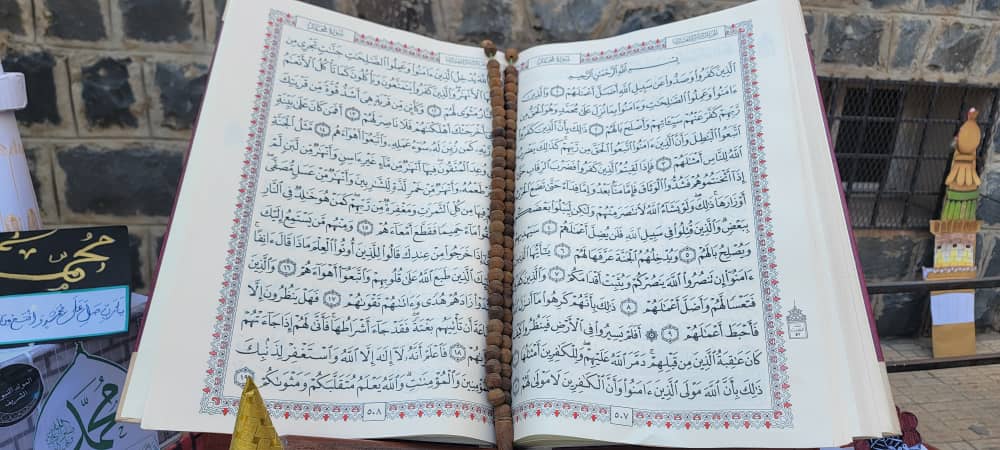 سورة محمد
بِسْمِ اللَّهِ الرَّحْمَٰنِ الرَّحِيمِ
الَّذِينَ كَفَرُوا وَصَدُّوا عَن سَبِيلِ اللَّهِ أَضَلَّ أَعْمَالَهُمْ ١ وَالَّذِينَ
ءَامَنُوا وَعَمِلُوا الصَّالِحَاتِ وَءَامَنُوا بِمَا نُزِّلَ عَلَىٰ مُحَمَّدٍ وَهُوَ الْحَقُّ
رَّبِّهِمْ كَفَّرَ عَنْهُمْ سَيِّئَاتِهِمْ وَأَصْلَحَ بَالَهُمْ ٢ ذَٰلِكَ بِأَنَّ الَّذِينَ كَفَرُوا
اتَّبَعُوا الْبَاطِلَ وَأَنَّ الَّذِينَ ءَامَنُوا اتَّبَعُوا الْحَقَّ مِن رَّبِّهِمْ كَذَٰلِكَ
اللَّهُ لِلنَّاسِ أَمْثَالَهُمْ ٣ فَإِذَا لَقِيتُمُ الَّذِينَ كَفَرُوا فَضَرْبَ الرِّقَابِ
إِذَا أَثْخَنتُمُوهُمْ فَشُدُّوا الْوَثَاقَ فَإِمَّا مَنًّا بَعْدُ وَإِمَّا فِدَاءً حَتَّىٰ تَضَعَ
أَوْزَارَهَا ذَٰلِكَ وَلَوْ يَشَاءُ اللَّهُ لَانتَصَرَ مِنْهُمْ وَلَٰكِن لِّيَبْلُوَا بَعْضَكُم
بِبَعْضٍ وَالَّذِينَ قُتِلُوا فِي سَبِيلِ اللَّهِ فَلَن يُضِلَّ أَعْمَالَهُمْ ٤
وَيُصْلِحُ بَالَهُمْ ٥ وَيُدْخِلُهُمُ الْجَنَّةَ عَرَّفَهَا لَهُمْ ٦ يَا أَيُّهَا
ءَامَنُوا إِن تَنصُرُوا اللَّهَ يَنصُرْكُمْ وَيُثَبِّتْ أَقْدَامَكُمْ ٧ وَالَّذِينَ
فَتَعْسًا لَّهُمْ وَأَضَلَّ أَعْمَالَهُمْ ٨ ذَٰلِكَ بِأَنَّهُمْ كَرِهُوا مَا أَنزَلَ
فَأَحْبَطَ أَعْمَالَهُمْ ٩ أَفَلَمْ يَسِيرُوا فِي الْأَرْضِ فَيَنظُرُوا
كَانَ عَاقِبَةُ الَّذِينَ مِن قَبْلِهِمْ دَمَّرَ اللَّهُ عَلَيْهِمْ وَلِلْكَافِرِينَ أَمْثَالُهَا
ذَٰلِكَ بِأَنَّ اللَّهَ مَوْلَى الَّذِينَ ءَامَنُوا وَأَنَّ الْكَافِرِينَ لَا مَوْلَىٰ لَهُمْ
٥٠٧
سورة محمد
يُدْخِلُ الَّذِينَ ءَامَنُوا وَعَمِلُوا الصَّالِحَاتِ جَنَّاتٍ تَجْرِي مِن
الْأَنْهَارُ وَالَّذِينَ كَفَرُوا يَتَمَتَّعُونَ وَيَأْكُلُونَ كَمَا تَأْكُلُ الْأَنْعَامُ
مَثْوًى لَّهُمْ ١٢ وَكَأَيِّن مِّن قَرْيَةٍ هِيَ أَشَدُّ قُوَّةً مِّن قَرْيَتِكَ
أَخْرَجَتْكَ أَهْلَكْنَاهُمْ فَلَا نَاصِرَ لَهُمْ ١٣ أَفَمَن كَانَ عَلَىٰ بَيِّنَةٍ
كَمَن زُيِّنَ لَهُ سُوءُ عَمَلِهِ وَاتَّبَعُوا أَهْوَاءَهُم ١٤ مَّثَلُ الْجَنَّةِ
فِيهَا أَنْهَارٌ مِّن مَّاءٍ غَيْرِ ءَاسِنٍ وَأَنْهَارٌ مِّن لَّبَنٍ لَّمْ
طَعْمُهُ وَأَنْهَارٌ مِّنْ خَمْرٍ لَّذَّةٍ لِّلشَّارِبِينَ وَأَنْهَارٌ مِّنْ عَسَلٍ مُّصَفًّى
فِيهَا مِن كُلِّ الثَّمَرَاتِ وَمَغْفِرَةٌ مِّن رَّبِّهِمْ كَمَنْ هُوَ خَالِدٌ فِي النَّارِ
مَاءً حَمِيمًا فَقَطَّعَ أَمْعَاءَهُمْ ١٥ وَمِنْهُم مَّن يَسْتَمِعُ إِلَيْكَ
إِذَا خَرَجُوا مِنْ عِندِكَ قَالُوا لِلَّذِينَ أُوتُوا الْعِلْمَ مَاذَا قَالَ ءَانِفًا
الَّذِينَ طَبَعَ اللَّهُ عَلَىٰ قُلُوبِهِمْ وَاتَّبَعُوا أَهْوَاءَهُمْ ١٦ وَالَّذِينَ
زَادَهُمْ هُدًى وَءَاتَاهُمْ تَقْوَاهُمْ ١٧ فَهَلْ يَنظُرُونَ إِلَّا
أَن تَأْتِيَهُم بَغْتَةً فَقَدْ جَاءَ أَشْرَاطُهَا فَأَنَّىٰ لَهُمْ إِذَا جَاءَتْهُمْ
١٨ فَاعْلَمْ أَنَّهُ لَا إِلَٰهَ إِلَّا اللَّهُ وَاسْتَغْفِرْ لِذَنبِكَ
وَالْمُؤْمِنَاتِ وَاللَّهُ يَعْلَمُ مُتَقَلَّبَكُمْ وَمَثْوَاكُمْ ١٩
٥٠٨
محمد
محمد
المولد النبوي الشريف